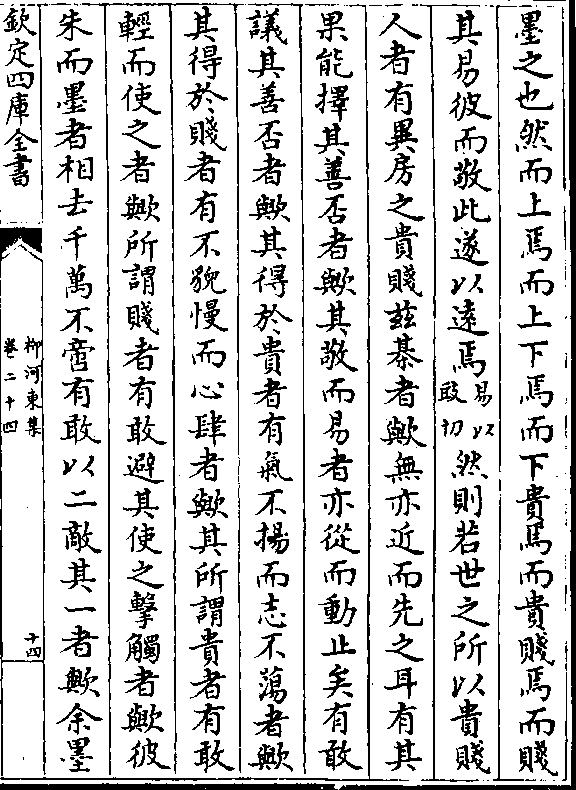 墨之也然而上焉而上下焉而下貴焉而貴賤焉而賤
其易彼而敬此遂以逺焉易以敢切然則若世之所以貴賤
人者有異房之貴賤兹棊者歟無亦近而先之耳有其
果能擇其善否者歟其敬而易者亦從而動止矣有敢
議其善否者歟其得於貴者有氣不揚而志不蕩者歟
其得於賤者有不貌慢而心肆者歟其所謂貴者有敢
輕而使之者歟所謂賤者有敢避其使之擊觸者歟彼
朱而墨者相去千萬不啻有敢以二敵其一者歟余墨
欽定四庫全書
柳河東集
卷二十四
十四